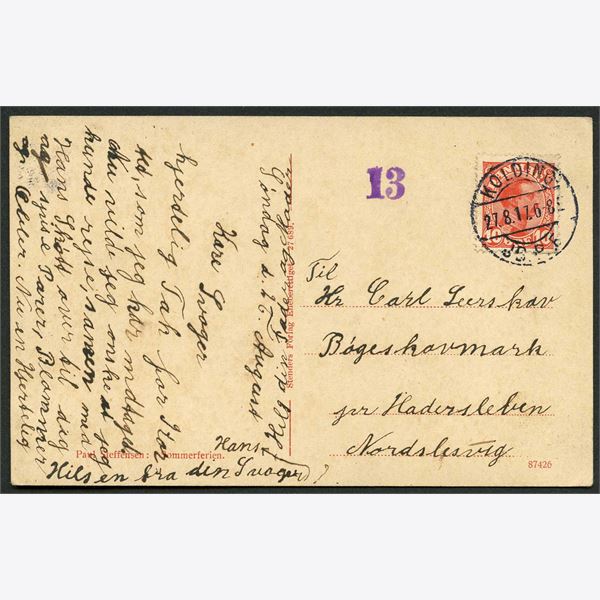 Søndag d. 26. August
Kære Svoger
hjerdelig Tak for Kor
ted, som jeg har modtaget
du vild jeg ønske at jeg
kunde rejse samen med
Hans Skøtt over til dig
og spise Pærer, Blommer
og Æbler. Nu en Hjertelig
Hilsen fra den Svoger
Hans
13
KOLDING
27.8.17.6-8
10 10
Til
Hr. Carl Leerskov
Bøgeskovmark
pr Hadersleben
Nordslesvig
Stenders Forlag Eneberettiget 27659.
Paul Steffensen: Sommerferien.
87426